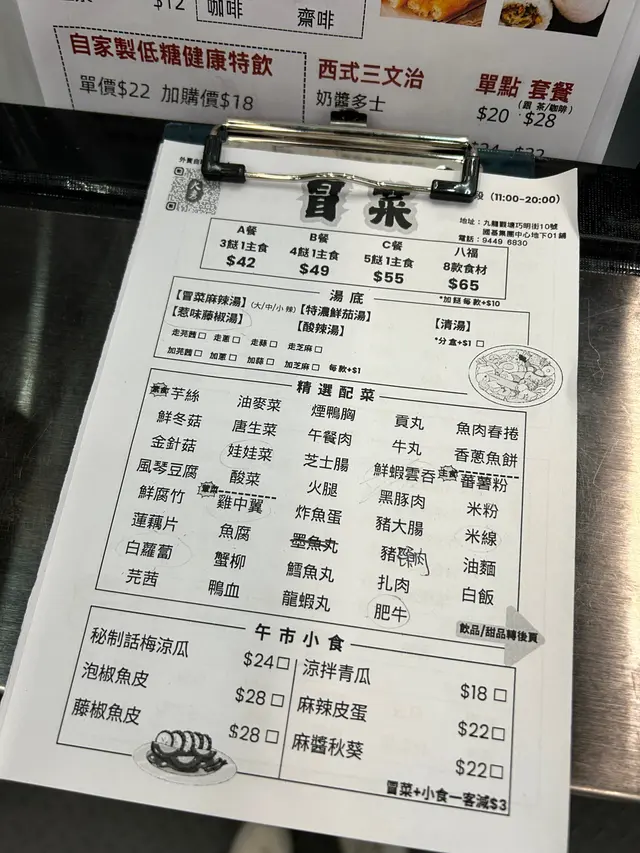 $12
咖啡
齋啡
自家製低糖健康特飲
單價$22 加購價$18
西式三文治
奶醬多士
單點 套餐
(跟 茶/咖啡)
$20 $28
$24 $32
外賣自取
冒菜
段 (11:00-20:00)
地址：九龍觀塘巧明街10號
國基集團中心地下01舖
電話：9449 6830
A餐 B餐 C餐 八福
3餸1主食 4餸1主食 5餸1主食 8款食材
$42 $49 $55 $65
*加餸每款+$10
湯底
【冒菜麻辣湯】(大/中/小辣) 【特濃鮮茄湯】 【清湯】
【惹味藤椒湯】 【酸辣湯】 *分盒+$1 □
走芫茜□ 走蔥□ 走蒜□ 走芝麻□
加芫茜□ 加蔥□ 加蒜□ 加芝麻□ 每款+$1
精選配菜
芋絲 油麥菜 煙鴨胸 貢丸 魚肉春捲
鮮冬菇 唐生菜 午餐肉 牛丸 香蔥魚餅
金針菇 娃娃菜 芝士腸 鮮蝦雲吞 主食 番薯粉
風琴豆腐 酸菜 火腿 黑豚肉 米粉
鮮腐竹 雞中翼 炸魚蛋 豬大腸 米線
蓮藕片 魚腐 墨魚丸 豬 油麵
白蘿蔔 蟹柳 鱈魚丸 扎肉 白飯
芫茜 鴨血 龍蝦丸 肥牛
飲品/甜品轉後頁
午市小食
秘制話梅涼瓜 $24□ 涼拌青瓜 $18 □
泡椒魚皮 $28 □ 麻辣皮蛋 $22□
藤椒魚皮 $28 □ 麻醬秋葵 $22□
冒菜+小食一客減$3